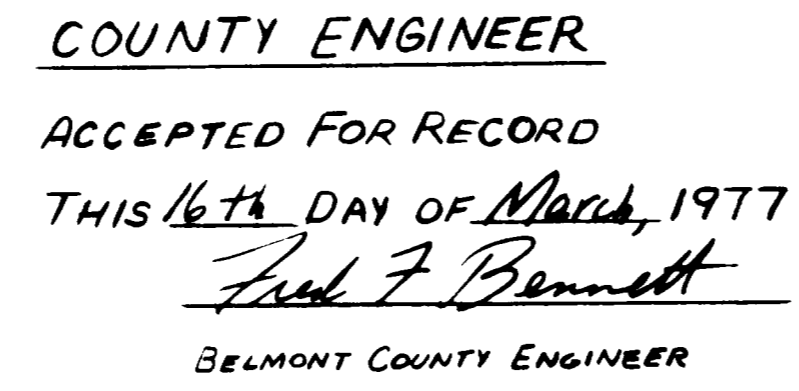 COUNTY ENGINEER
ACCEPTED FOR RECORD
THIS 16th DAY OF March, 1977
Fred F Bennett
BELMONT COUNTY ENGINEER